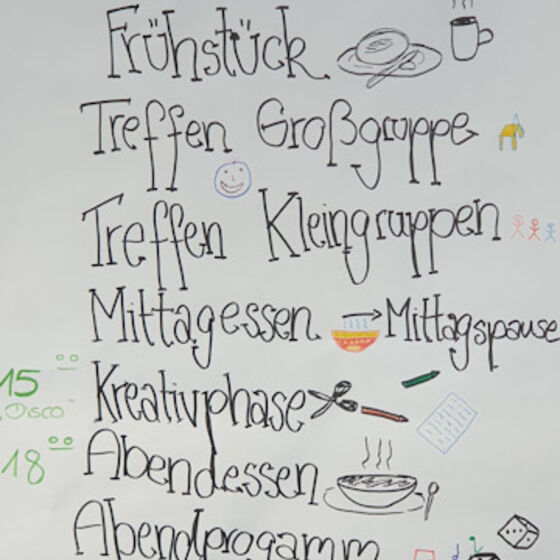 Frühstück
Treffen Großgruppe
Treffen Kleingruppen
Mittagessen → Mittagspause
15 00
Kreativphase
Disco
18 00
Abendessen
Abendprogamm